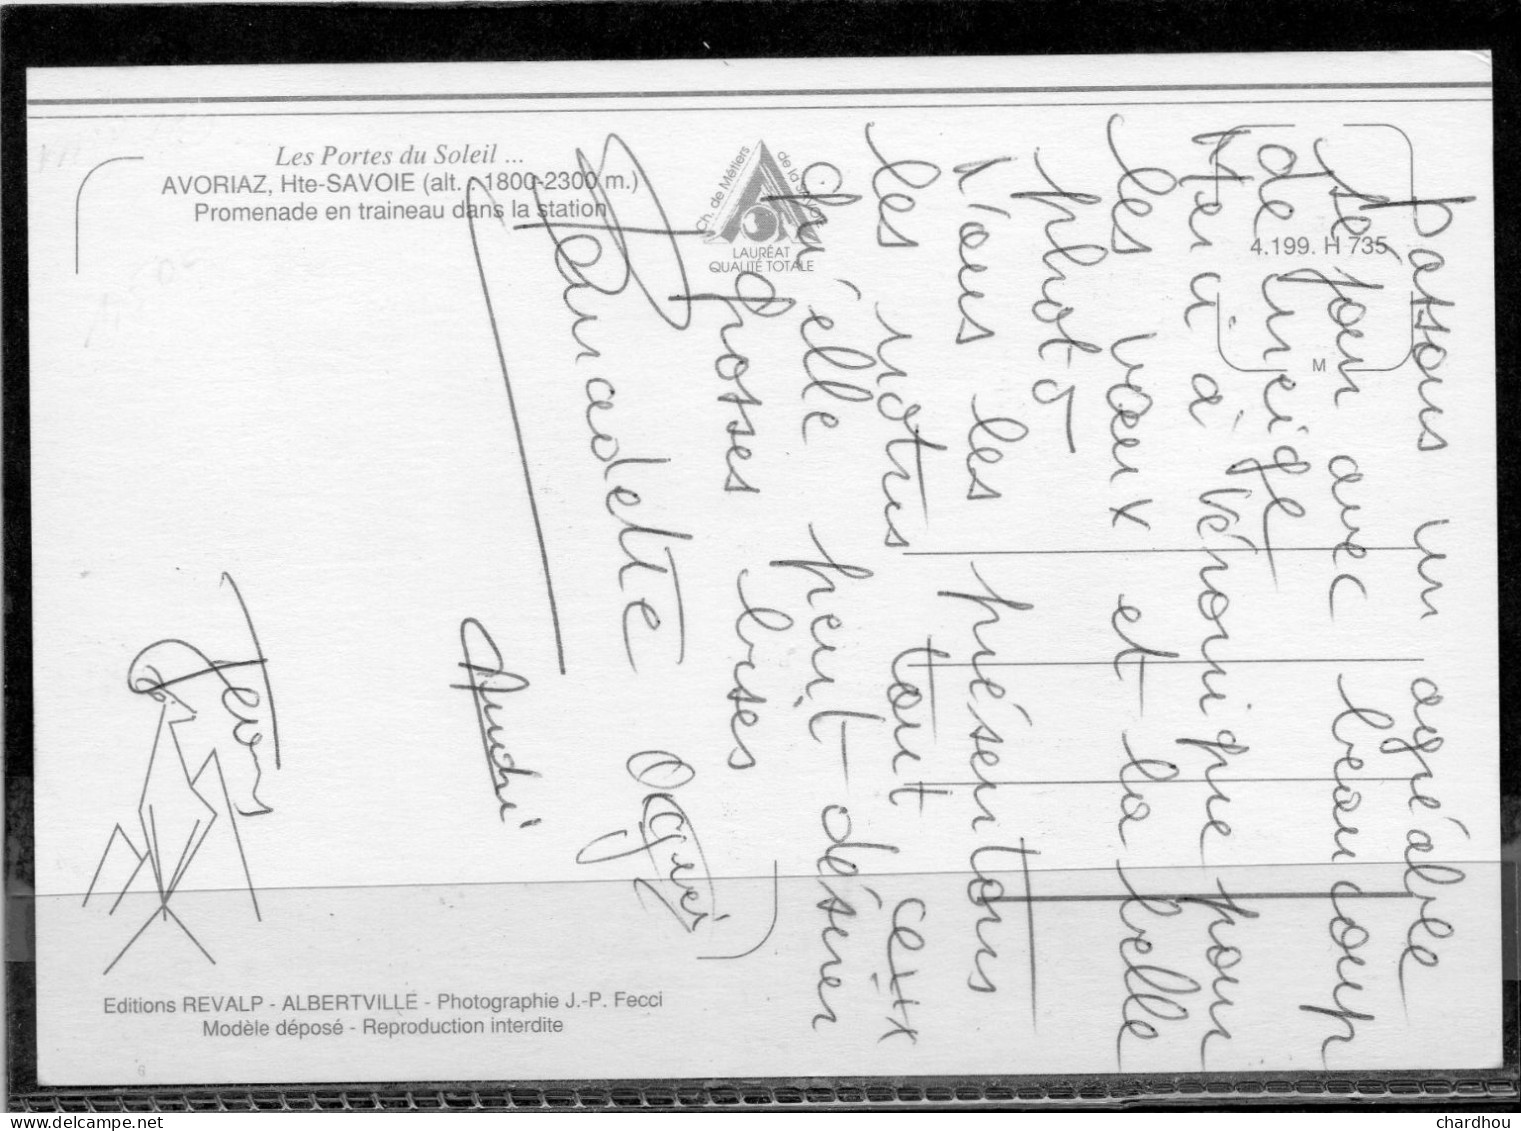 Les Portes du Soleil ...
AVORIAZ, Hte-SAVOIE (alt. : 1800-2300 m.)
Promenade en traineau dans la station
Ch. de Métiers de la Savoie
LAURÉAT
QUALITÉ TOTALE
4.199. H 735
M
passons un agréable
séjour avec beaucoup
de neige
Merci à Véronique pour
les vœux et la belle
photo
Nous les présentons
les notres tout ceux
qu'elle peut désirer
Grosses bises
Bernadette
André
Editions REVALP - ALBERTVILLE - Photographie J.-P. Fecci
Modèle déposé - Reproduction interdite
6
delcampe.net
chardhou